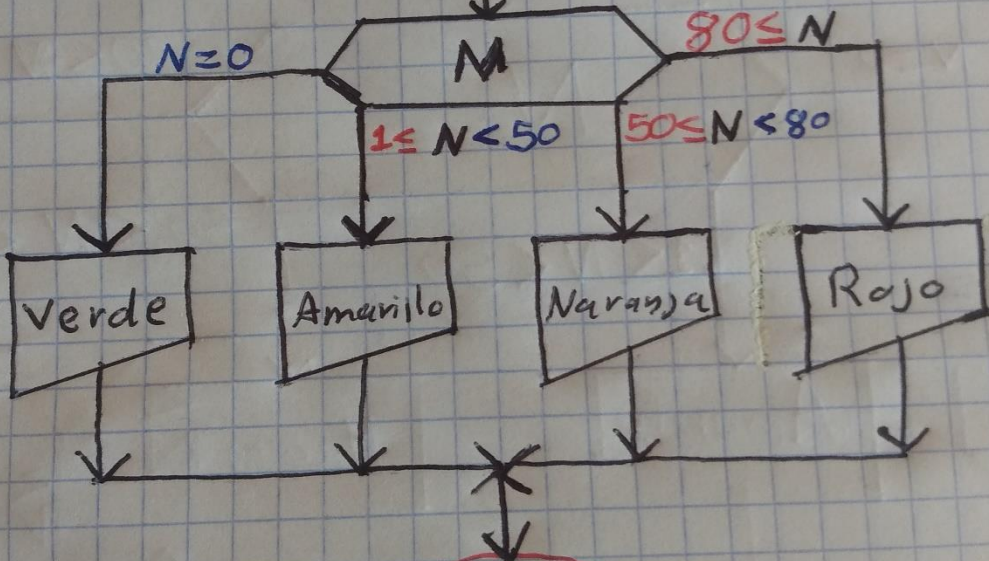 N=0
N
80≤ N
1≤ N<50
50≤N <80
Verde
Amarillo
Naranja
Rojo